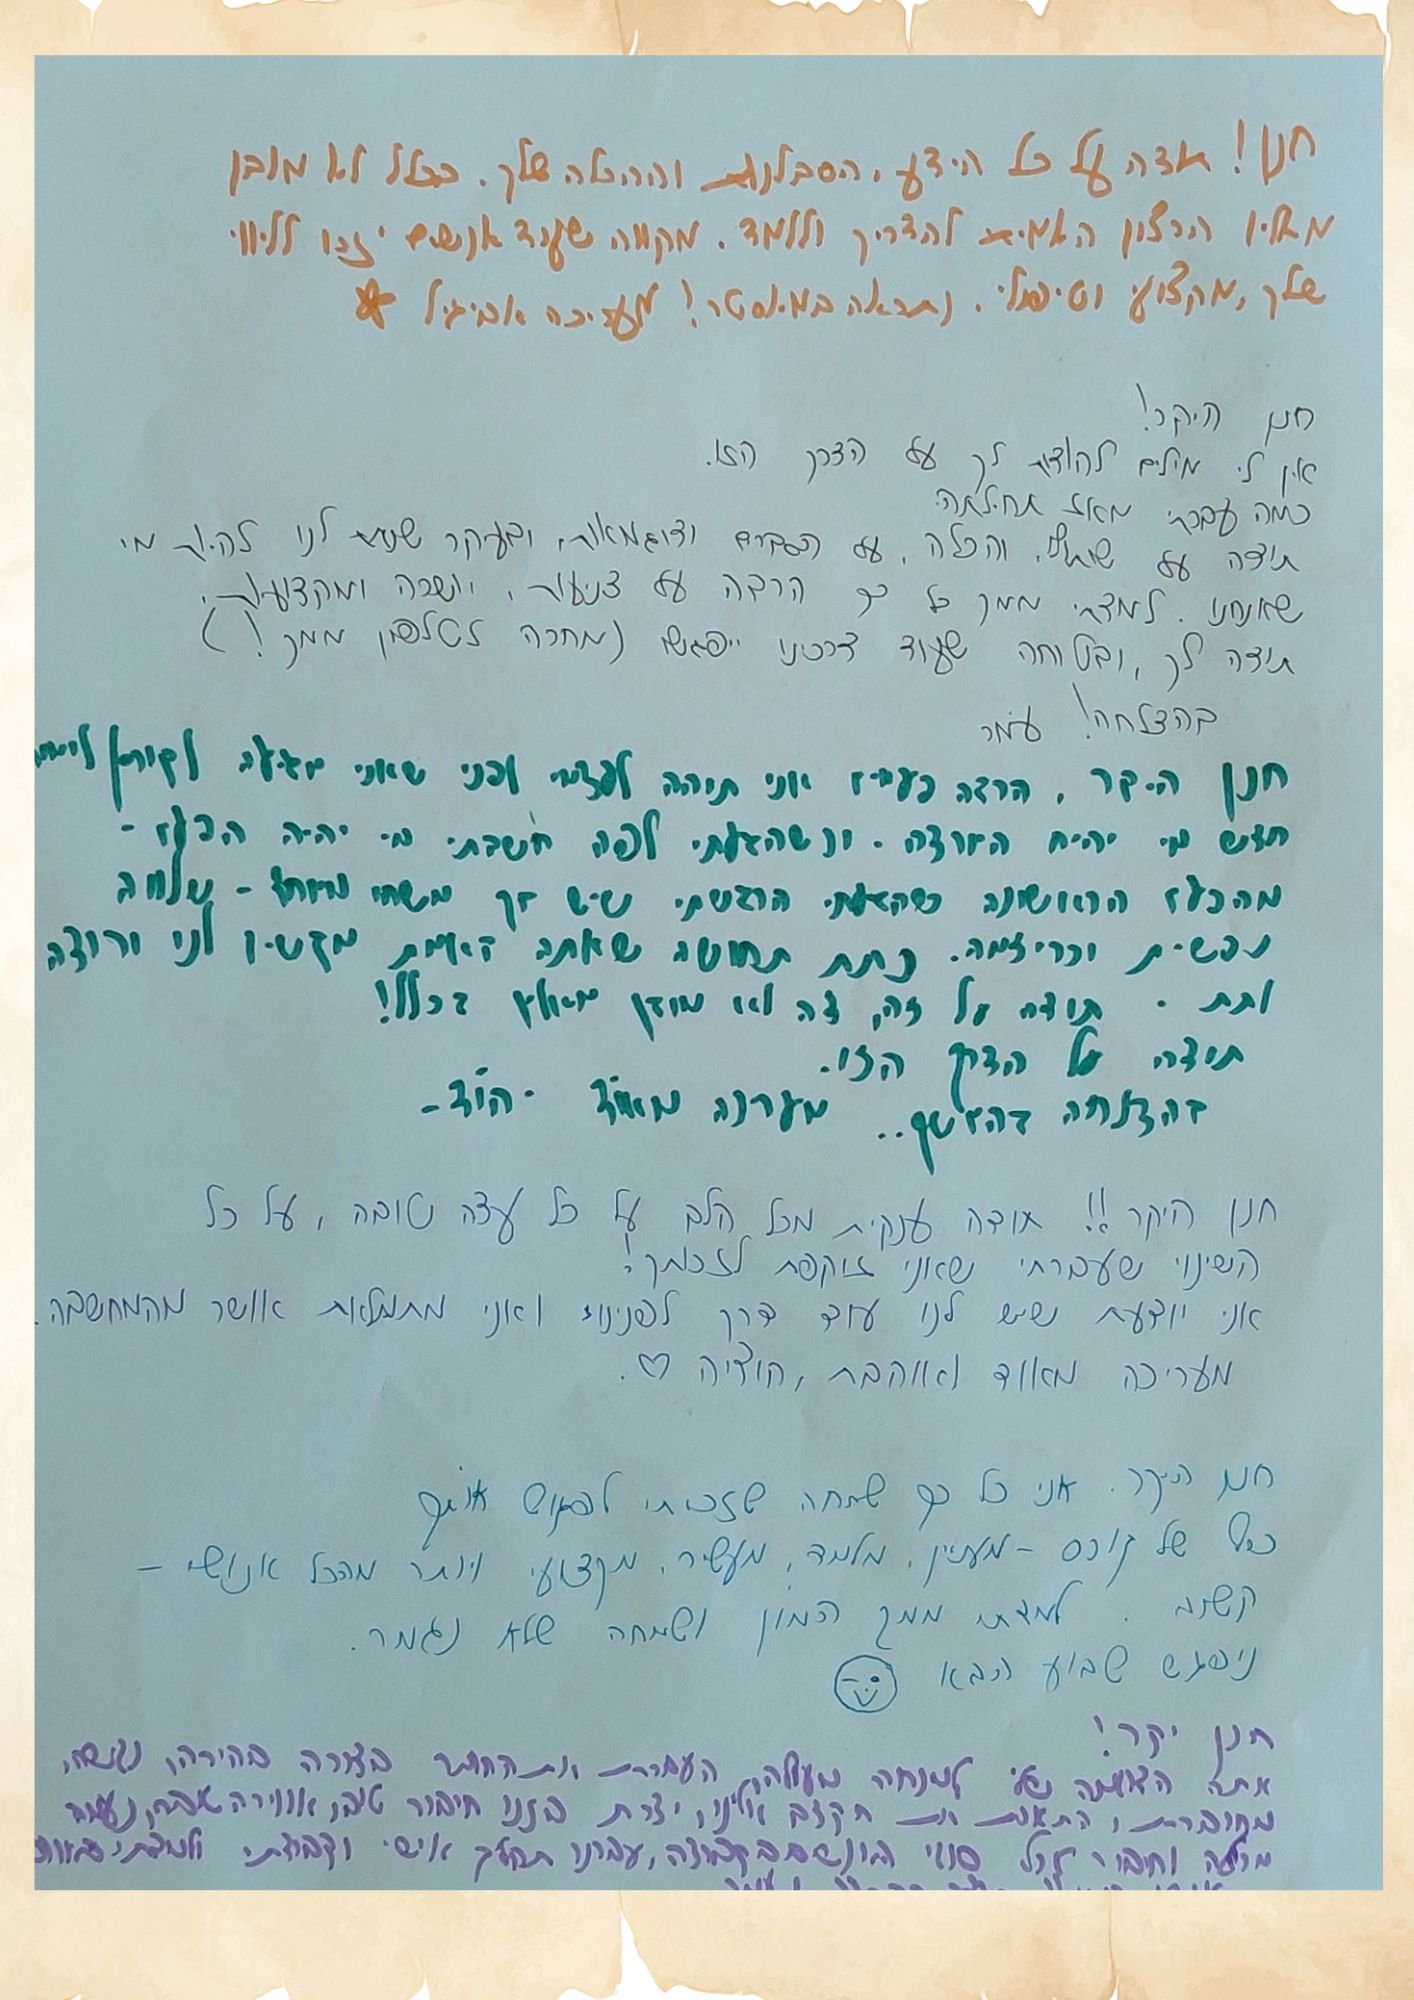 חנן! תודה על כל הידע, הסבלנות וההכלה שלך. בכלל לא מובן
מאליו הרצון האמיתי להדריך וללמד. מקווה שעוד אנשים יזכו לליווי
שלך, מקצועי וטיפולי. נתראה במאסטר! מעריכה אביגיל
חנן היקר!
אין לי מילים להודות לך על הדרך הזו.
כמה עברתי מאז תחילתה.
תודה על והכלה, על הסברים ודוגמאות, ובעיקר שנתת לנו להיות מי
שאנחנו. למדתי ממך כל כך הרבה על צניעות, יושרה ומקצועיות.
תודה לך, ובטוחה שעוד דרכנו ייפגשו (מחכה לטלפון ממך!)
בהצלחה! עומר
חנן היקר, הרבה פעמים אני תוהה לפני שאני מגיעה לקורס
חדש מי יהיה המורה. וכשהגעתי לפה חשבתי מי יהיה הפעם -
מהפעם הראשונה כשהגעתי הרגשתי שיש בך משהו מיוחד - שלווה
נפשית וכריזמה. נתת תחושה שאתה באמת מקשיב לנו ורוצה
לתת. תודה על זה, זה לא מובן מאליו בכלל!
תודה על הדרך הזו.
בהצלחה בהמשך.. מעריכה מאוד - הוד -
חנן היקר!! תודה ענקית מכל הלב על כל עצה טובה, על כל
השינוי שעברתי שאני זוקפת לזכותך!
אני יודעת שיש לנו עוד דרך לפנינו ואני מתמלאת אושר מהמחשבה.
מעריכה מאוד ואוהבת, הודיה ♡.
חנן היקר. אני כל כך שמחה שזכיתי לפגוש אותך
כזה של קורס - מעניין, מלמד, מעשיר, מקצועי ויותר מהכל אנושי -
למדתי ממך המון ושמחה שלא נגמר.
ניפגש שבוע הבא
חנן יקר!
אתה מנחה מעולה, העברת את החומר בצורה בהירה, נגישה,
מחוברת, והתאמת את הקצב אלינו, יצרת בנינו חיבור טוב, אווירה
וחיבור לכל סוגי האנשים בקבוצה, עברנו תהליך אישי וקבוצתי